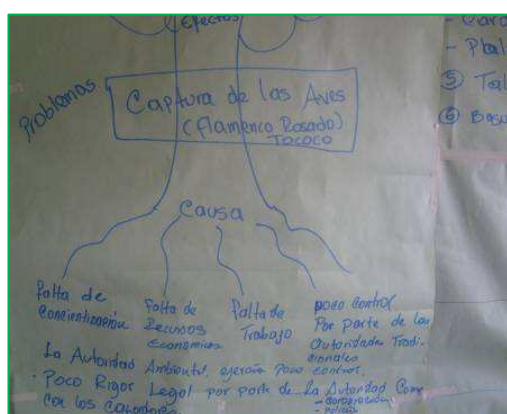 Efectos
Problemas
Captura de las Aves
(Flamenco Rosado)
TOCOCO
Causa
falta de
Concientización
falta de
Recursos
Economicos
falta de
Trabajo
poco control
Por parte de las
Autoridades Tradi-
cionales
La Autoridad Ambiental, ejercen Poco control.
- Poco Rigor Legal por parte de La Autoridad Como
con los
- policia
- Card
- Pbal
⑤ Tal
⑥ Basu